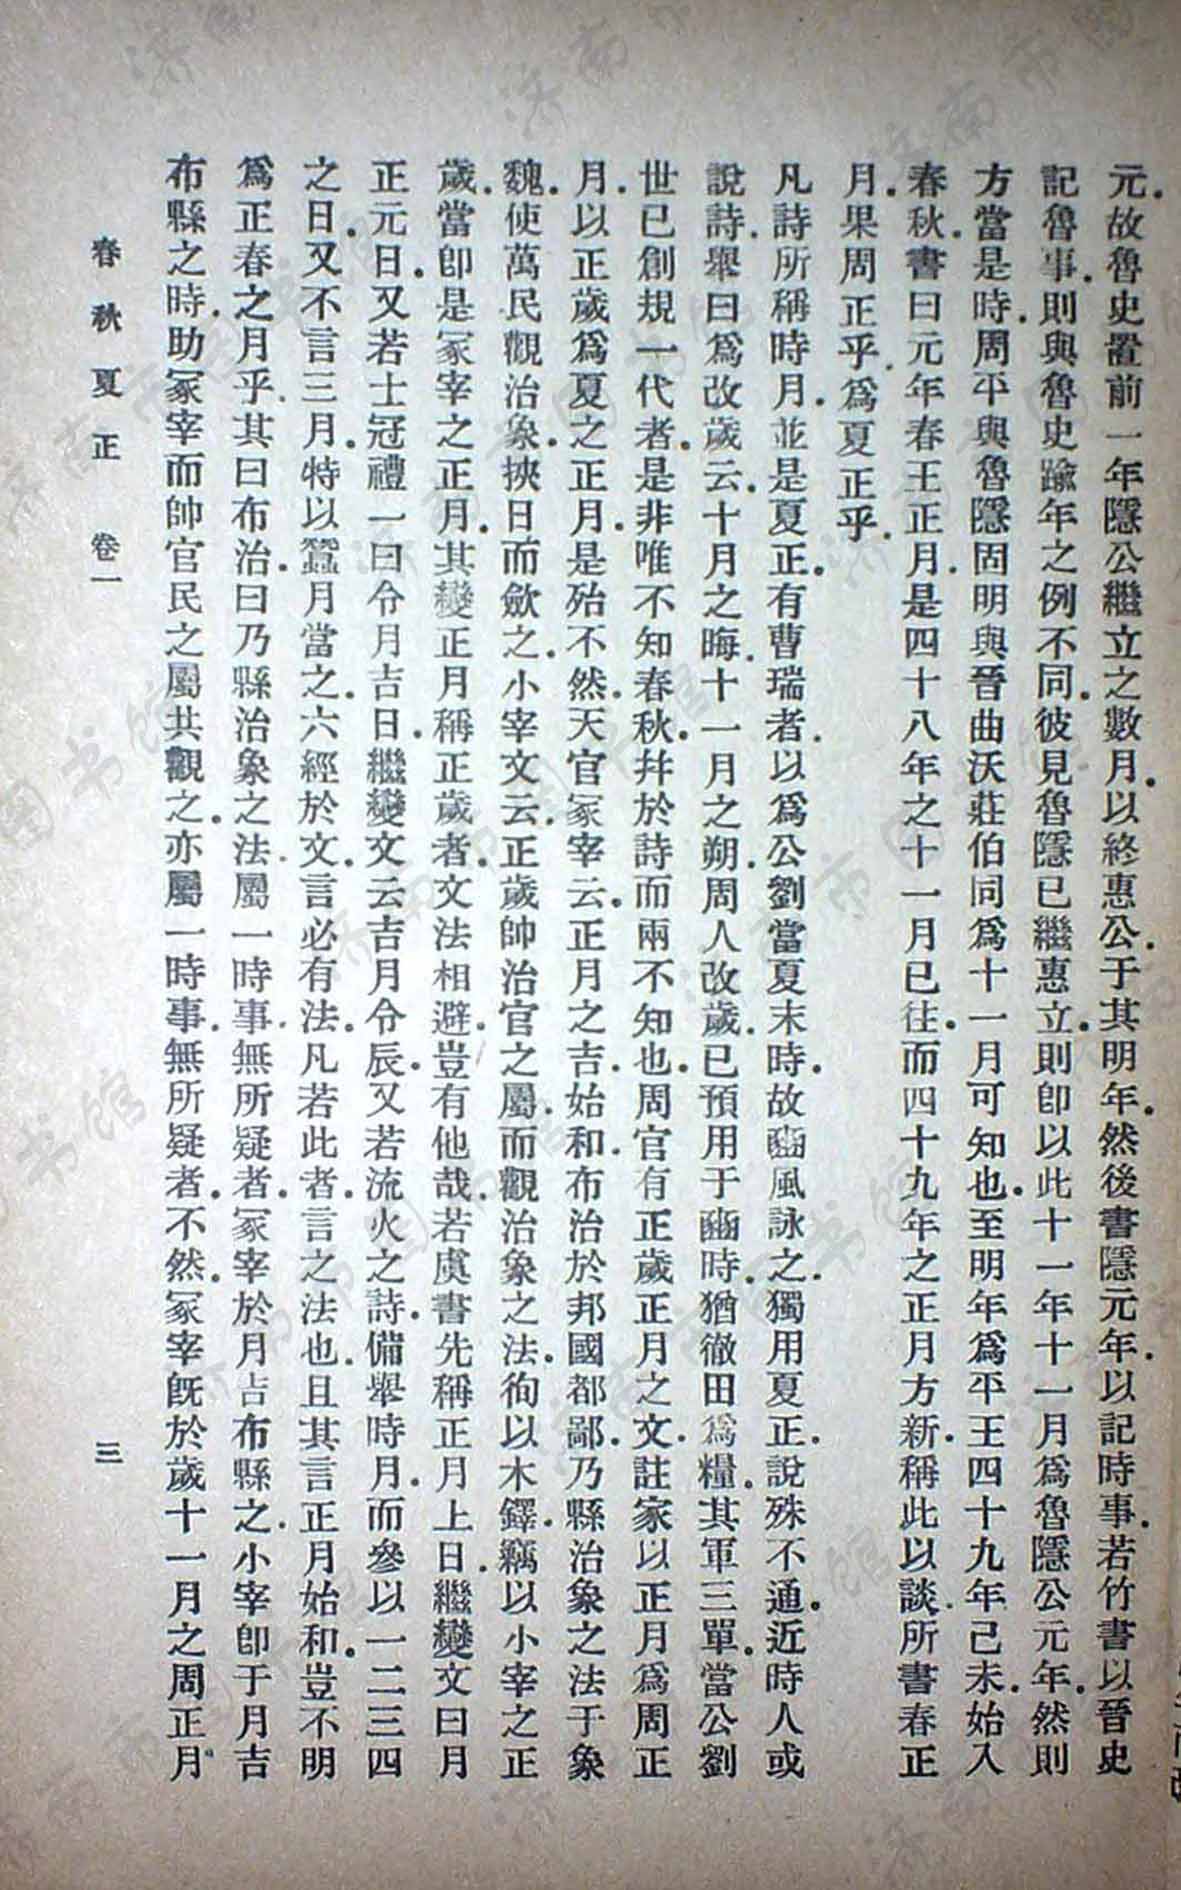 元故魯史置前一年隱公繼立之數月以終惠公于其明年然後書隱元年以記時事若竹書以晉史
記魯事則與魯史踰年之例不同彼見魯隱已繼惠立則即以此十一年十一月為魯隱公元年然則
方當是時周平與魯隱固明與晉曲沃莊伯同為十一月可知也至明年為平王四十九年己未始入
春秋書曰元年春王正月是四十八年之十一月已往而四十九年之正月方新稱此以談所書春正
月果周正乎為夏正乎
凡詩所稱時月並是夏正有曹瑞者以為公劉當夏末時故豳風詠之獨用夏正說殊不通近時人或
說詩舉曰為改歲云十月之晦十一月之朔周人改歲已預用于豳時猶徹田為糧其軍三單當公劉
世已創規一代者是非唯不知春秋并於詩而兩不知也周官有正歲正月之文註家以正月為周正
月以正歲為夏之正月是殆不然天官冢宰云正月之吉始和布治於邦國都鄙乃縣治象之法于象
魏使萬民觀治象挾日而斂之小宰文云正歲帥治官之屬而觀治象之法徇以木鐸竊以小宰之正
歲當即是冢宰之正月其變正月稱正歲者文法相避豈有他哉若虞書先稱正月上日繼變文曰月
正元日又若士冠禮一曰令月吉日繼變文云吉月令辰又若流火之詩備舉時月而參以一二三四
之日又不言三月特以蠶月當之六經於文言必有法凡若此者言之法也且其言正月始和豈不明
為正春之月乎其曰布治曰乃縣治象之法屬一時事無所疑者冢宰於月吉布縣之小宰即于月吉
布縣之時助冢宰而帥官民之屬共觀之亦屬一時事無所疑者不然冢宰既於歲十一月之周正月
春秋夏正 卷一 三
济南市图书馆